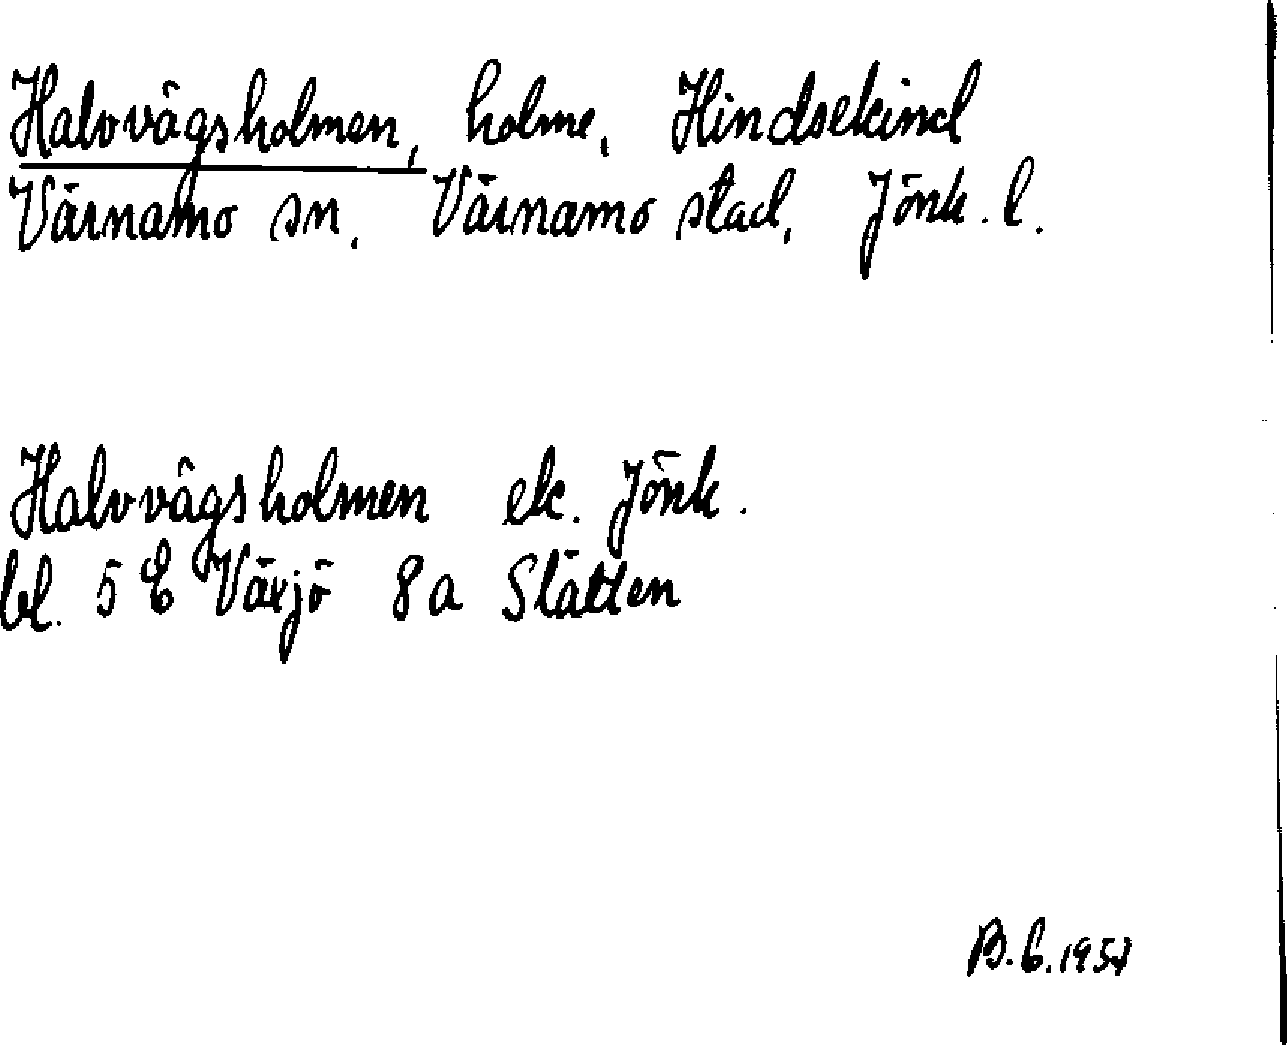 Halvvägsholmen, holme, Hindsekind
Värnamo sn. Värnamo stad, Jönk. l.
Halvvägsholmen ek. Jönk.
bl. 5 E Växjö 8 a Slätten
B. 1957